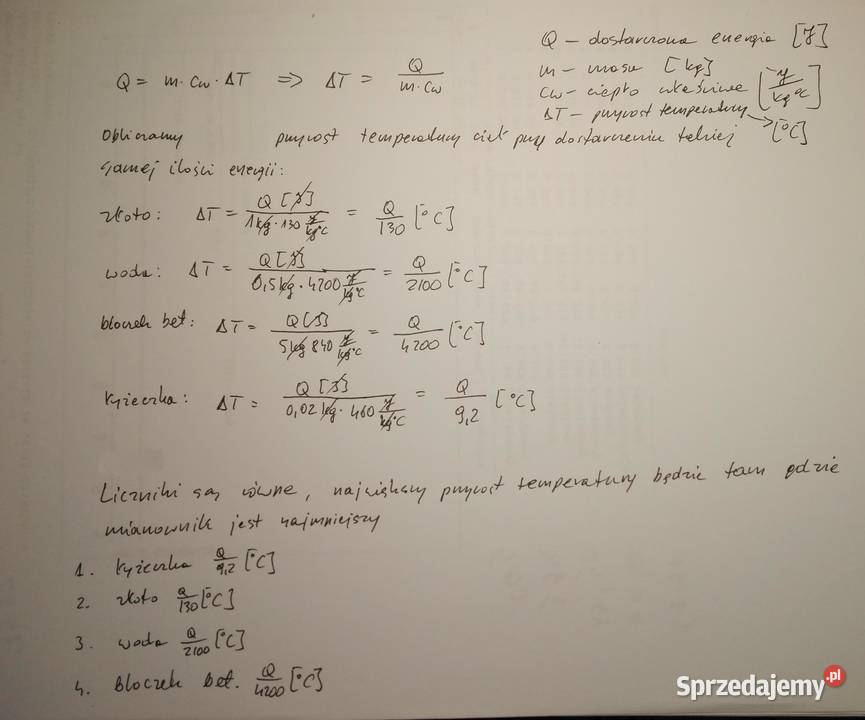 Q – dostarczona energia [J]
m – masa [kg]
cw – ciepło właściwe [J/kg°C]
ΔT – przyrost temperatury → [°C]
Q = m · cw · ΔT => ΔT = Q/(m · cw)
Obliczamy przyrost temperatury ciał przy dostarczeniu takiej
samej ilości energii:
złoto: ΔT = Q [J]/(1kg · 130 J/kg°C) = Q/130 [°C]
woda: ΔT = Q [J]/(0,5kg · 4200 J/kg°C) = Q/2100 [°C]
bloczek bet: ΔT = Q [J]/(5kg 840 J/kg°C) = Q/4200 [°C]
łyżeczka: ΔT = Q [J]/(0,02kg · 460 J/kg°C) = Q/9,2 [°C]
Liczniki są równe, największy przyrost temperatury będzie tam gdzie
mianownik jest najmniejszy
1. łyżeczka Q/9,2 [°C]
2. złoto Q/130 [°C]
3. woda Q/2100 [°C]
4. bloczek bet. Q/4200 [°C]
Sprzedajemy.pl